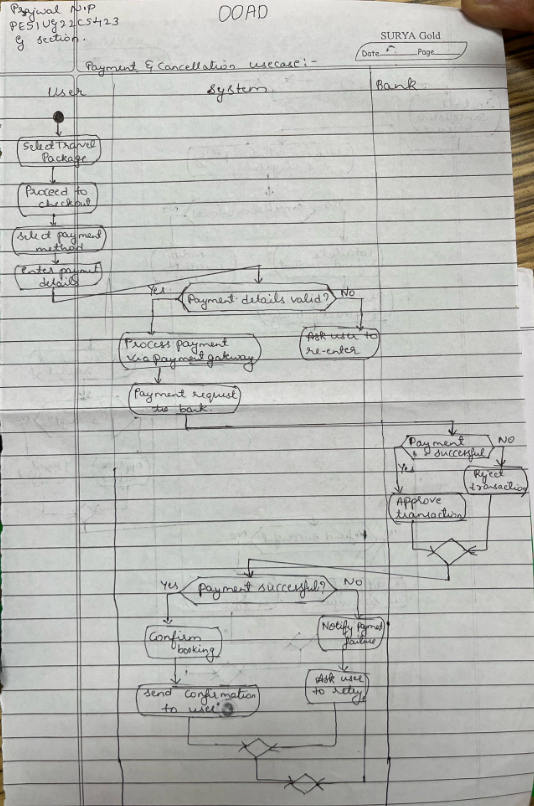 Prajwal N.P
PES1UG22CS423
G section.
OOAD
SURYA Gold
Date
Page
Payment & Cancellation usecase:-
User
System
Bank
Select Travel
Package
Proceed to
checkout
select payment
method
Enter
details
Payment details valid?
Yes
No
Process payment
via payment gateway
Ask user to
re-enter
Payment request
to bank
Payment
successful
Yes
NO
Approve
transaction
Reject
transaction
payment successful?
Yes
NO
Confirm
booking
Notify
failure
send confirmation
to user
Ask user
to retry